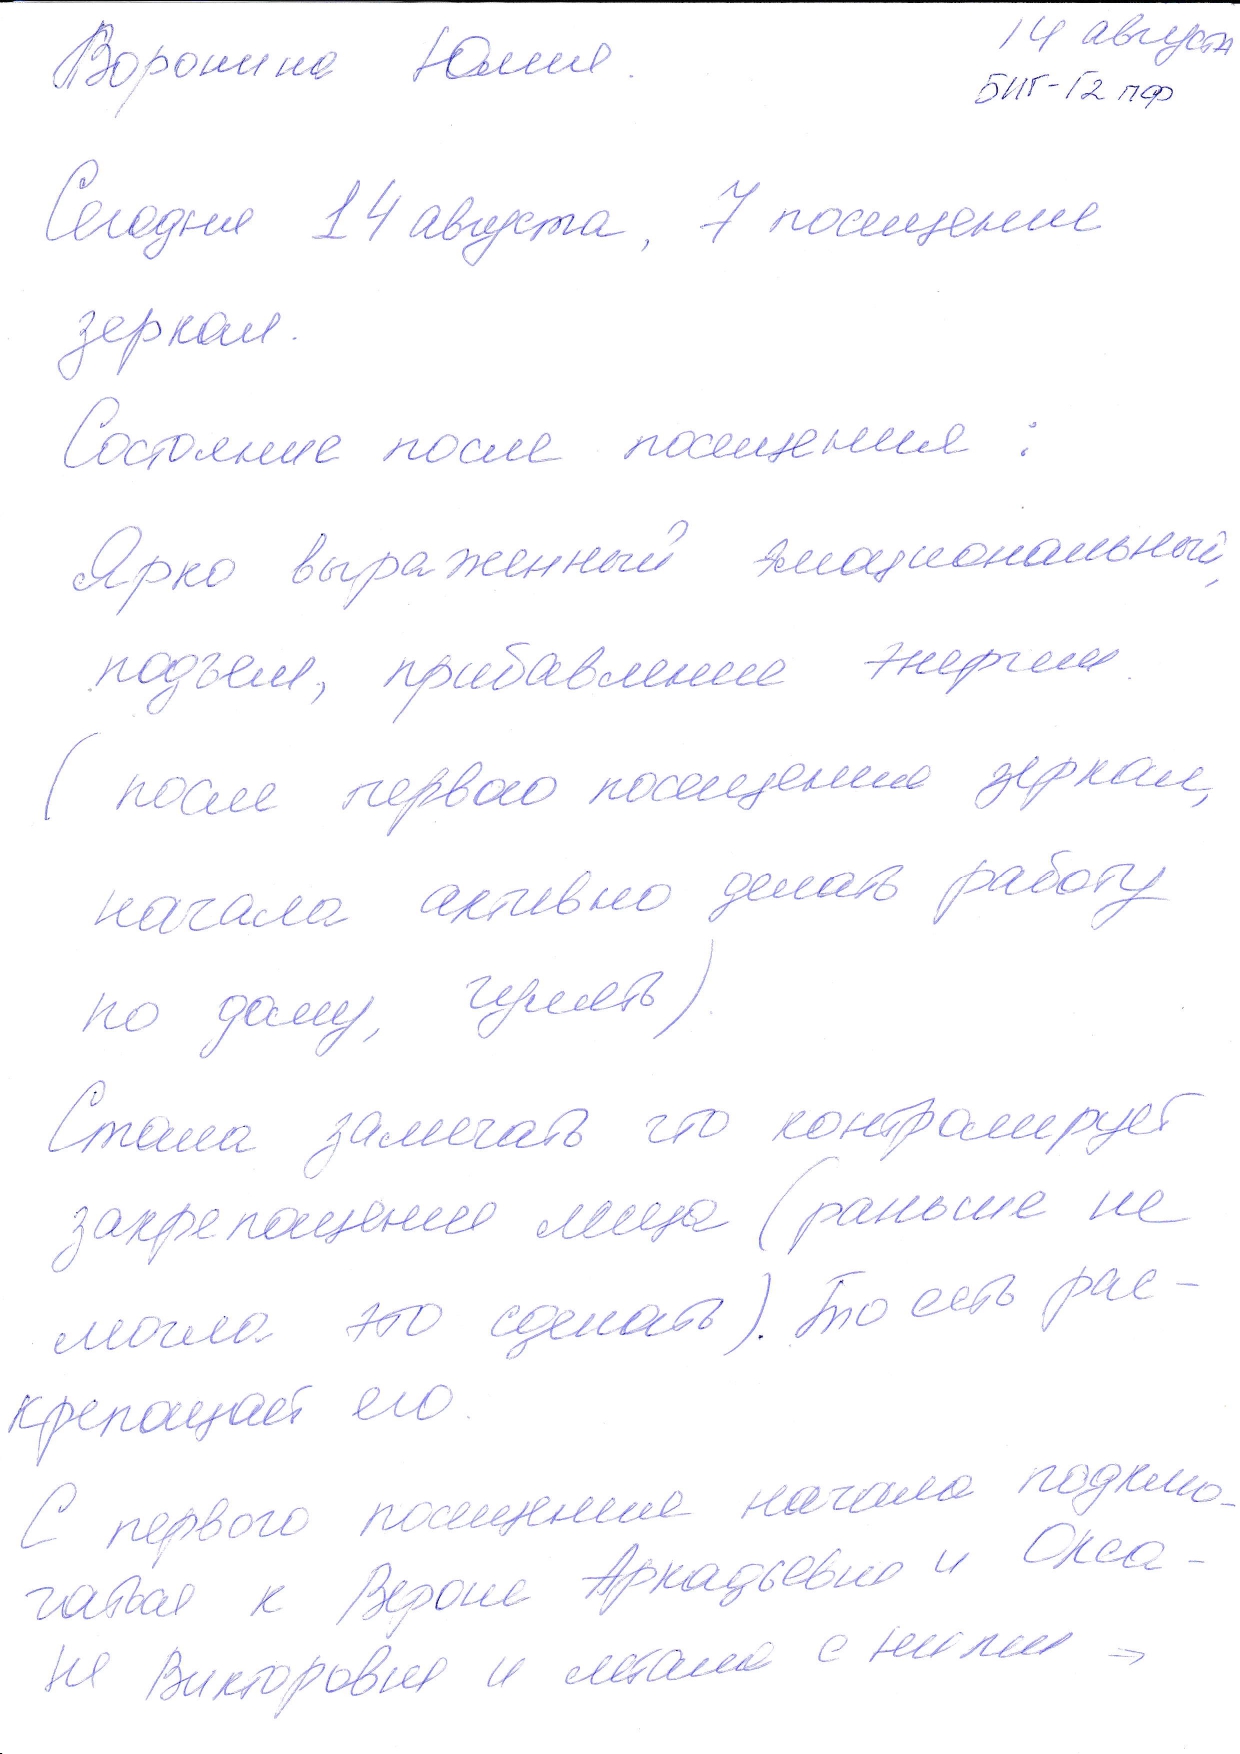 Воронина Юлия.
14 августа
БИГ-Г2 ПФ
Сегодня 14 августа, 7 посещение
зеркал.
Состояние после посещения:
Ярко выраженный эмоциональный,
подъем, прибавление энергии.
(после первого посещения зеркал,
начала активно делать работу
по дому, гулять).
Стала замечать что контролирует
закрепощение лица (раньше не
могла это сделать). То есть рас-
крепощает его.
С первого посещения начала подклю-
чаться к Верое Аркадьевне и Окса-
не Викторовне и летала с ними →